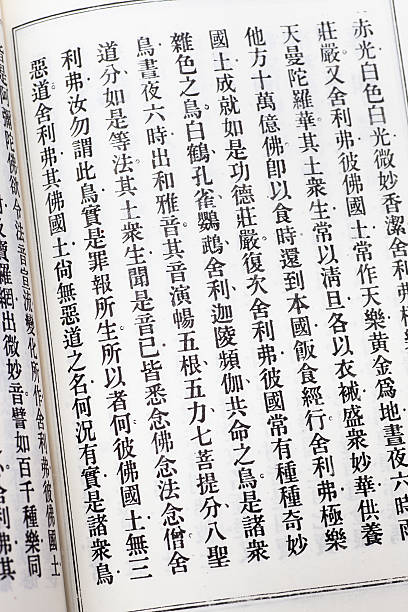 赤光白色白光微妙香潔舍
莊嚴又舍利弗彼佛國土常作天樂黃金為地晝夜六時雨
天曼陀羅華其土衆生常以清旦各以衣裓盛衆妙華供養
他方十萬億佛卽以食時還到本國飯食經行舍利弗極樂
國土成就如是功德莊嚴復次舍利弗彼國常有種種奇妙
雜色之鳥白鶴孔雀鸚鵡舍利迦陵頻伽共命之鳥是諸衆
鳥晝夜六時出和雅音其音演暢五根五力七菩提分八聖
道分如是等法其土衆生聞是音已皆悉念佛念法念僧舍
利弗汝勿謂此鳥實是罪報所生所以者何彼佛國土無三
惡道舍利弗其佛國土尙無惡道之名何況有實是諸衆鳥
皆是阿彌陀佛欲令法音宣流變化所作舍利弗彼佛國土
及寶羅網出微妙音譬如百千種樂同
舍利弗其